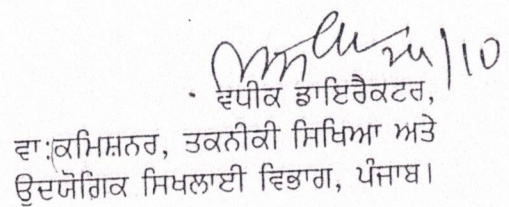 /10
ਵਧੀਕ ਡਾਇਰੈਕਟਰ,
ਵਾ:ਕਮਿਸ਼ਨਰ, ਤਕਨੀਕੀ ਸਿਖਿਆ ਅਤੇ
ਉਦਯੋਗਿਕ ਸਿਖਲਾਈ ਵਿਭਾਗ, ਪੰਜਾਬ।